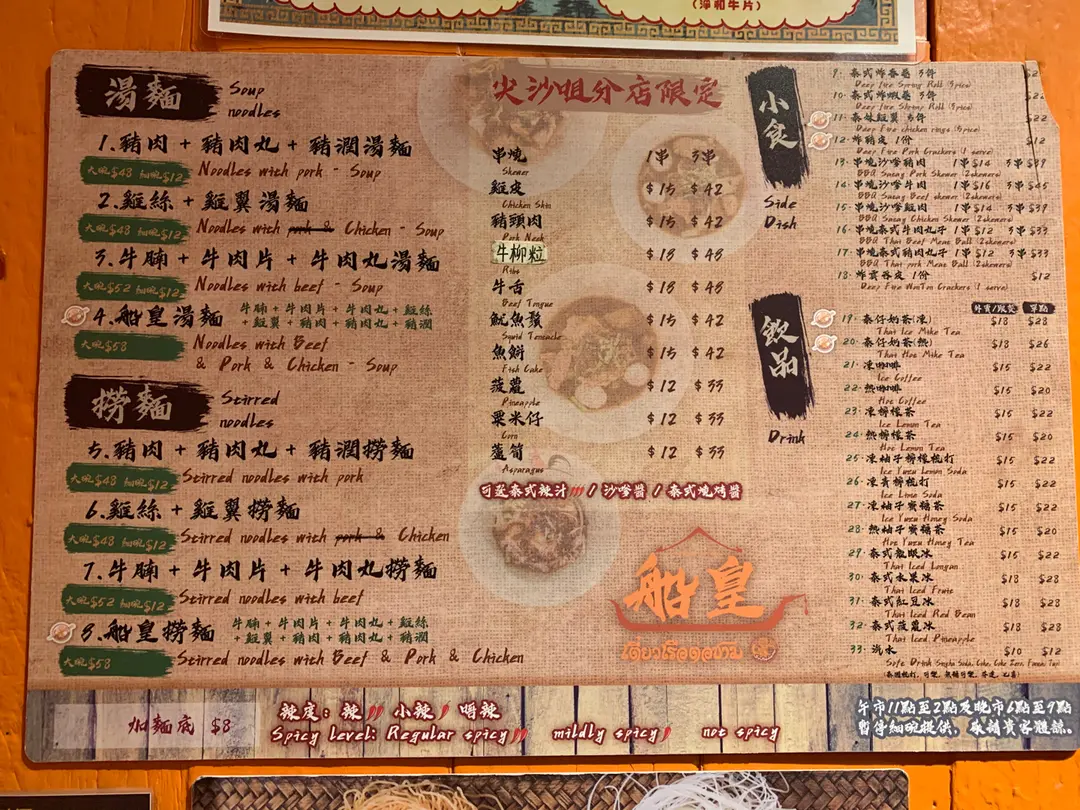 (淨和牛片)
湯麵 Soup noodles
1.豬肉 + 豬肉丸 + 豬潤湯麵
大碗$48 細碗$12 Noodles with pork - Soup
2.雞絲 + 雞翼湯麵
大碗$48 細碗$12 Noodles with pork & Chicken - Soup
3.牛腩 + 牛肉片 + 牛肉丸湯麵
大碗$52 細碗$12 Noodles with beef - Soup
4.船皇湯麵 牛腩 + 牛肉片 + 牛肉丸 + 雞絲
+ 雞翼 + 豬肉 + 豬肉丸 + 豬潤
大碗$58 Noodles with Beef
& Pork & Chicken - Soup
撈麵 Stirred noodles
5.豬肉 + 豬肉丸 + 豬潤撈麵
大碗$48 細碗$12 Stirred noodles with pork
6.雞絲 + 雞翼撈麵
大碗$48 細碗$12 Stirred noodles with pork & Chicken
7.牛腩 + 牛肉片 + 牛肉丸撈麵
大碗$52 細碗$12 Stirred noodles with beef
8.船皇撈麵 牛腩 + 牛肉片 + 牛肉丸 + 雞絲
+ 雞翼 + 豬肉 + 豬肉丸 + 豬潤
大碗$58 Stirred noodles with Beef & Pork & Chicken
尖沙咀分店限定
串燒 1串 3串
Skewer
雞皮 $15 $42
Chicken Skin
豬頸肉 $15 $42
Pork Neck
牛柳粒 $18 $48
Ribs
牛舌 $18 $48
Beef Tongue
魷魚鬚 $15 $42
Squid Tentacle
魚餅 $15 $42
Fish Cake
菠蘿 $12 $33
Pineapple
粟米仔 $12 $33
Corn
蘆筍 $12 $33
Asparagus
可選泰式辣汁 / 沙嗲醬 / 泰式燒烤醬
船皇
小食 Side Dish
9. 泰式炸春卷 3件
Deep Fire Spring Roll (3pics)
10. 泰式炸蝦卷 3件
Deep Fire Shrimp Roll (3pics)
11. 泰妹雞翼 3件 $22
Deep Fire chicken rings (3pics)
12. 炸豬皮 1份 $12
Deep Fire Pork Crackers (1 serve)
13. 串燒沙嗲豬肉 1串$14 3串$39
BBQ Satay Pork Skewer (2skewers)
14. 串燒沙嗲牛肉 1串$16 3串$45
BBQ Satay Beef skewer (2skewers)
15. 串燒沙嗲雞肉 1串$14 3串$39
BBQ Satay Chicken Skewer (2skewers)
16. 串燒泰式牛肉丸子 1串$12 3串$33
BBQ Thai Beef Meat Ball (2skewers)
17. 串燒泰式豬肉丸子 1串$12 3串$33
BBQ Thai pork Meat Ball (2skewers)
18. 炸雲吞皮 1份 $12
Deep Fire WonTon Crackers (1 serve)
飲品 Drink
外賣/跟餐 單點
19. 泰仔奶茶(凍) $18 $28
Thai Ice Milk Tea
20. 泰仔奶茶(熱) $18 $26
Thai Hot Milk Tea
21. 凍咖啡 $15 $22
Ice Coffee
22. 熱咖啡 $15 $20
Hot Coffee
23. 凍檸檬茶 $15 $22
Ice Lemon Tea
24. 熱檸檬茶 $15 $20
Hot Lemon Tea
25. 凍柚子檸檬梳打 $15 $22
Ice Yuzu Lemon Soda
26. 凍青檸梳打 $15 $22
Ice Lime Soda
27. 凍柚子蜜糖茶 $15 $22
Ice Yuzu Honey Soda
28. 熱柚子蜜糖茶 $15 $20
Hot Yuzu Honey Tea
29. 泰式龍眼冰 $15 $22
Thai Iced Longan
30. 泰式水果冰 $18 $28
Thai Iced Fruit
31. 泰式紅豆冰 $18 $28
Thai Iced Red Bean
32. 泰式菠蘿冰 $18 $28
Thai Iced Pineapple
33. 汽水 $10 $12
加麵底 $8
辣度: 辣 小辣 唔辣
Spicy Level: Regular spicy mildly spicy not spicy
午市11點至2點及晚市6點至9點
暫停細碗提供，敬請貴客體諒。